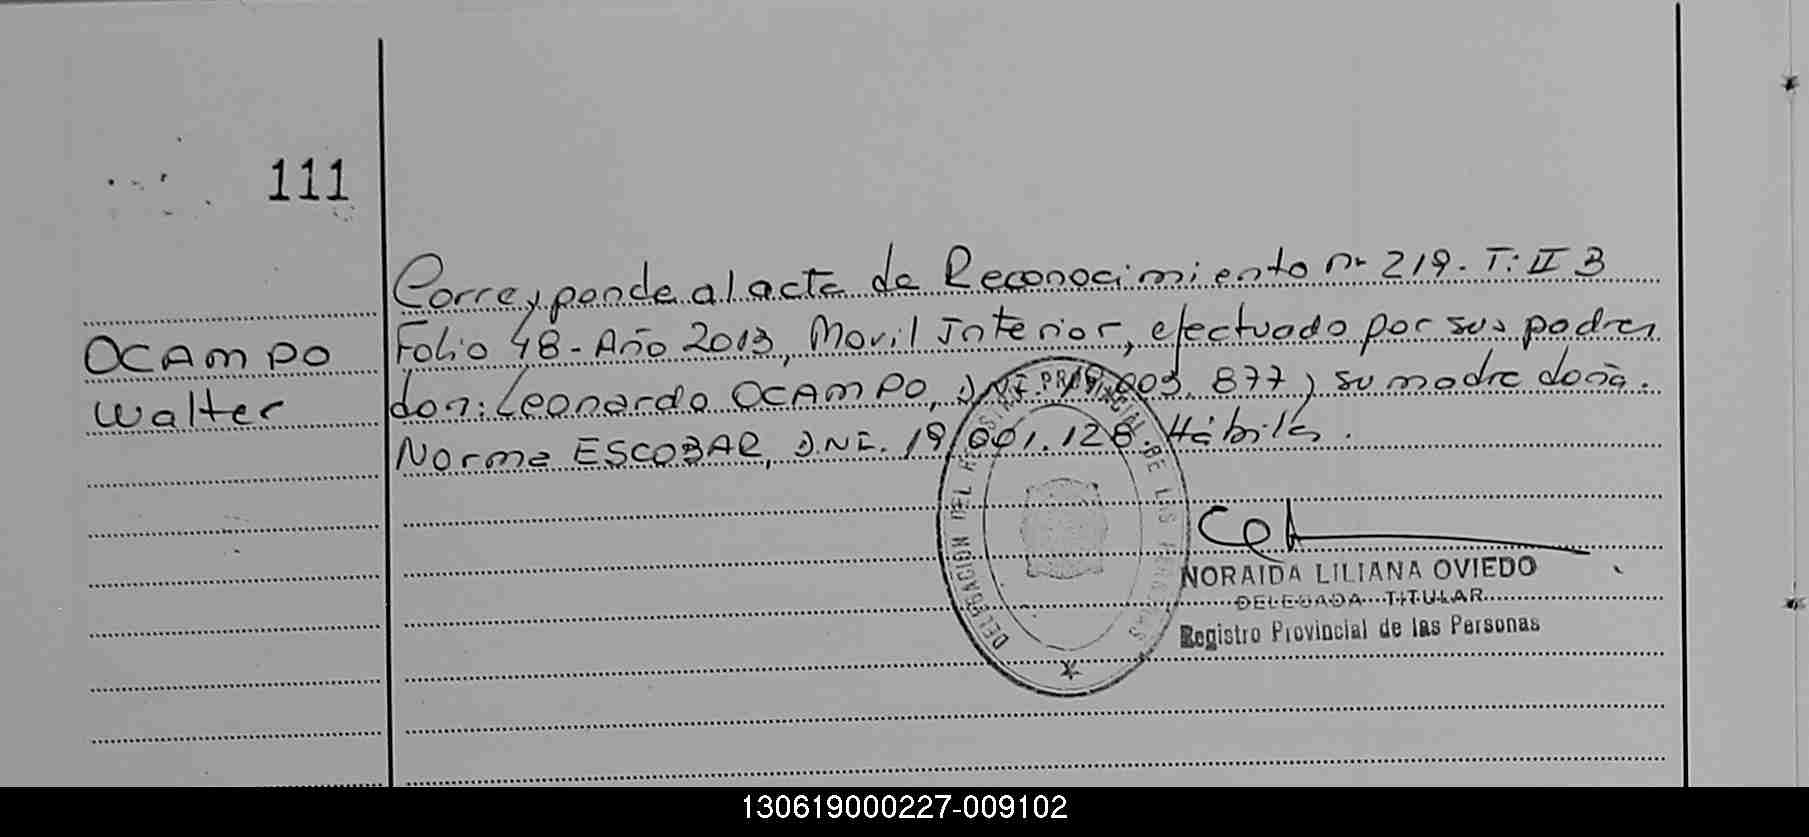 111
Corresponde al acta de Reconocimiento nº 219. T: II B
OCAMPO
Walter
Folio 48 - Año 2013, Movil Interior, efectuado por sus padres
don: Leonardo OCAMPO, D.N.I. 19.003.877 y su madre doña.
Norma ESCOBAR, D.N.I. 19.001.128. Hábiles.
DELEGACIÓN DEL REGISTRO PROVINCIAL DE LAS PERSONAS
NORAIDA LILIANA OVIEDO
DELEGADA TITULAR
Registro Provincial de las Personas
130619000227-009102